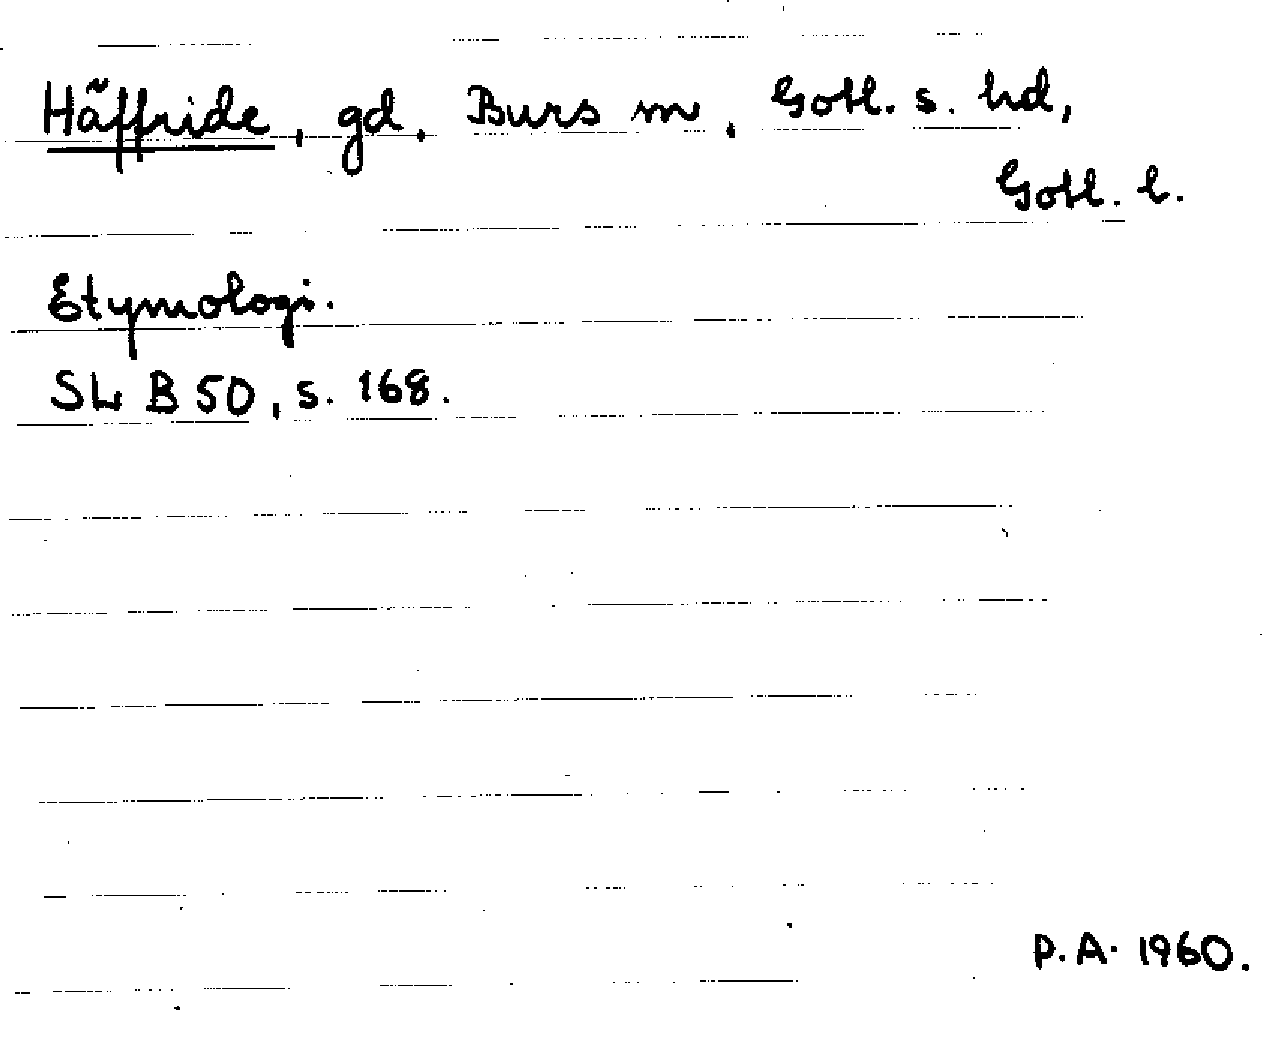 Häffride, gd. Burs sn, Gotl. s. hd,
Gotl. l.
Etymologi.
SL B 50, s. 168.
P.A. 1960.